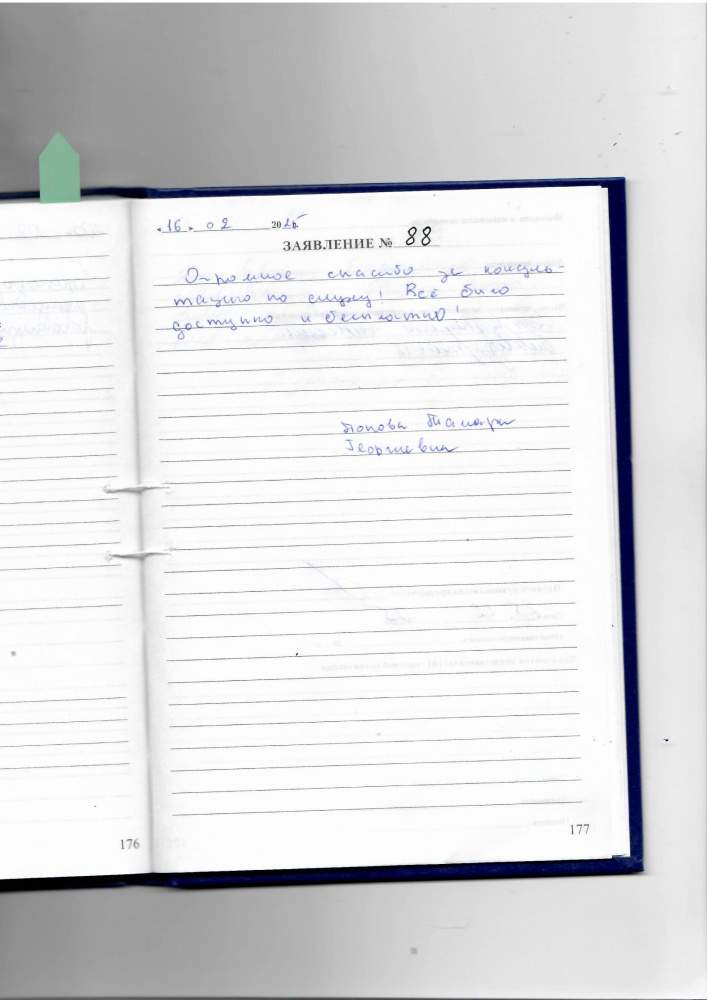 « 16 » 02 2015
ЗАЯВЛЕНИЕ № 88
Огромное спасибо за консуль-
тацию по слуху! Всё было
доступно и бесплатно!
Попова Тамара
Георгиевна
176
177